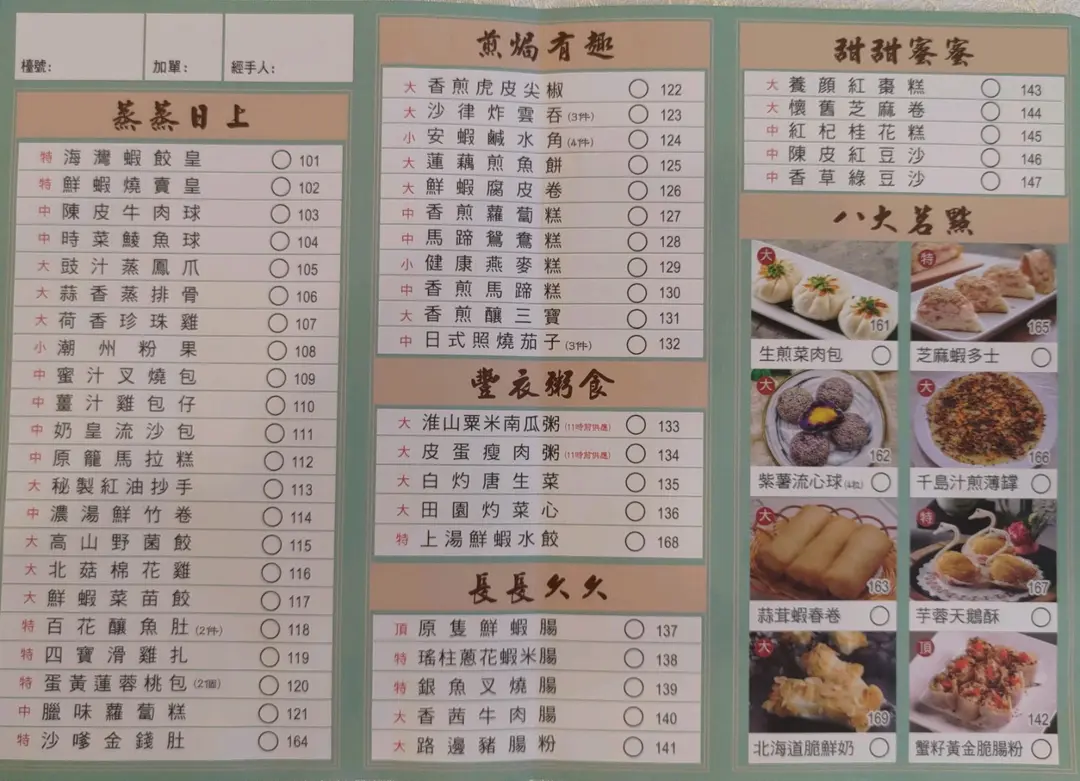 檯號：
加單：
經手人：
蒸蒸日上
特 海灣蝦餃皇 101
特 鮮蝦燒賣皇 102
中 陳皮牛肉球 103
中 時菜鯪魚球 104
大 豉汁蒸鳳爪 105
大 蒜香蒸排骨 106
大 荷香珍珠雞 107
小 潮州粉果 108
中 蜜汁叉燒包 109
中 薑汁雞包仔 110
中 奶皇流沙包 111
中 原籠馬拉糕 112
大 秘製紅油抄手 113
中 濃湯鮮竹卷 114
大 高山野菌餃 115
大 北菇棉花雞 116
大 鮮蝦菜苗餃 117
特 百花釀魚肚(2件) 118
特 四寶滑雞扎 119
特 蛋黃蓮蓉桃包(2個) 120
中 臘味蘿蔔糕 121
特 沙嗲金錢肚 164
煎焗有趣
大 香煎虎皮尖椒 122
大 沙律炸雲吞(3件) 123
小 安蝦鹹水角(4件) 124
大 蓮藕煎魚餅 125
大 鮮蝦腐皮卷 126
中 香煎蘿蔔糕 127
中 馬蹄鴛鴦糕 128
小 健康燕麥糕 129
中 香煎馬蹄糕 130
大 香煎釀三寶 131
中 日式照燒茄子(3件) 132
豐衣粥食
大 淮山粟米南瓜粥(11時前供應) 133
大 皮蛋瘦肉粥(11時前供應) 134
大 白灼唐生菜 135
大 田園灼菜心 136
特 上湯鮮蝦水餃 168
長長久久
頂 原隻鮮蝦腸 137
特 瑤柱蔥花蝦米腸 138
特 銀魚叉燒腸 139
大 香茜牛肉腸 140
大 路邊豬腸粉 141
甜甜蜜蜜
大 養顏紅棗糕 143
大 懷舊芝麻卷 144
中 紅杞桂花糕 145
中 陳皮紅豆沙 146
中 香草綠豆沙 147
八大茗點
大 161
生煎菜肉包
特 165
芝麻蝦多士
大 162
紫薯流心球(4粒)
大 166
千島汁煎薄罉
大 163
蒜茸蝦春卷
特 167
芋蓉天鵝酥
大 169
北海道脆鮮奶
頂 142
蟹籽黃金脆腸粉